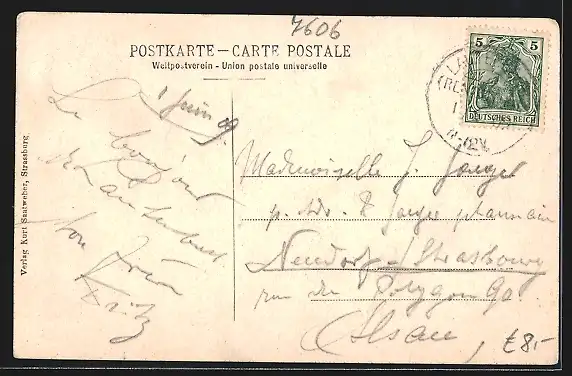 7606
POSTKARTE – CARTE POSTALE
Weltpostverein - Union postale universelle
5 5
DEUTSCHES REICH
1 Juin 09.
Le bonjour
de Lauterburg
ton
Fritz
Mademoiselle J. Jaeger
p. Adr. Jaeger
Neudorf-Strasbourg
rue du Polygone 90.
Alsace
£8,-
Verlag Kurt Saatweber, Strassburg.